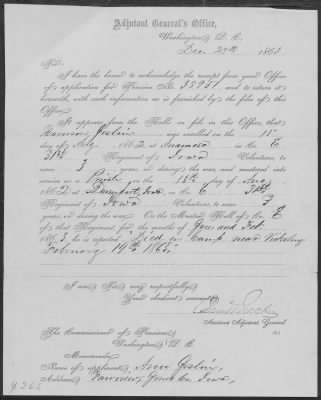 Adjutant General's Office,
Washington, D. C.
Dec 29th 1863
Sir:
I have the honor to acknowledge the receipt from your Office
of application for Pension No. 38937 and to return it
herewith, with such information as is furnished by the files of this
Office.
It appears from the Rolls on file in this Office, that
Joslin was enrolled on the 15
day of Aug, 1862, at Anamosa in Co. E
31st Regiment of Iowa Volunteers, to
serve 3 years, or during the war, and mustered into
service as a Private on the day of
1862, at Davenport, Iowa in Co. E 31st
Regiment of Iowa Volunteers, to serve 3
years, or during the war. On the Muster Roll of Co. E
of that Regiment, for the months of Jan and Feb
1863, he is reported "Died in Camp near Vicksburg
February 19th 1863."
I am, Sir, very respectfully,
Your obedient servant,
Assistant Adjutant General.
The Commissioner of Pensions,
Washington, D. C.
Memoranda:
Name of applicant, Ann Joslin,
Address, Fairview, Jones Co Iowa,